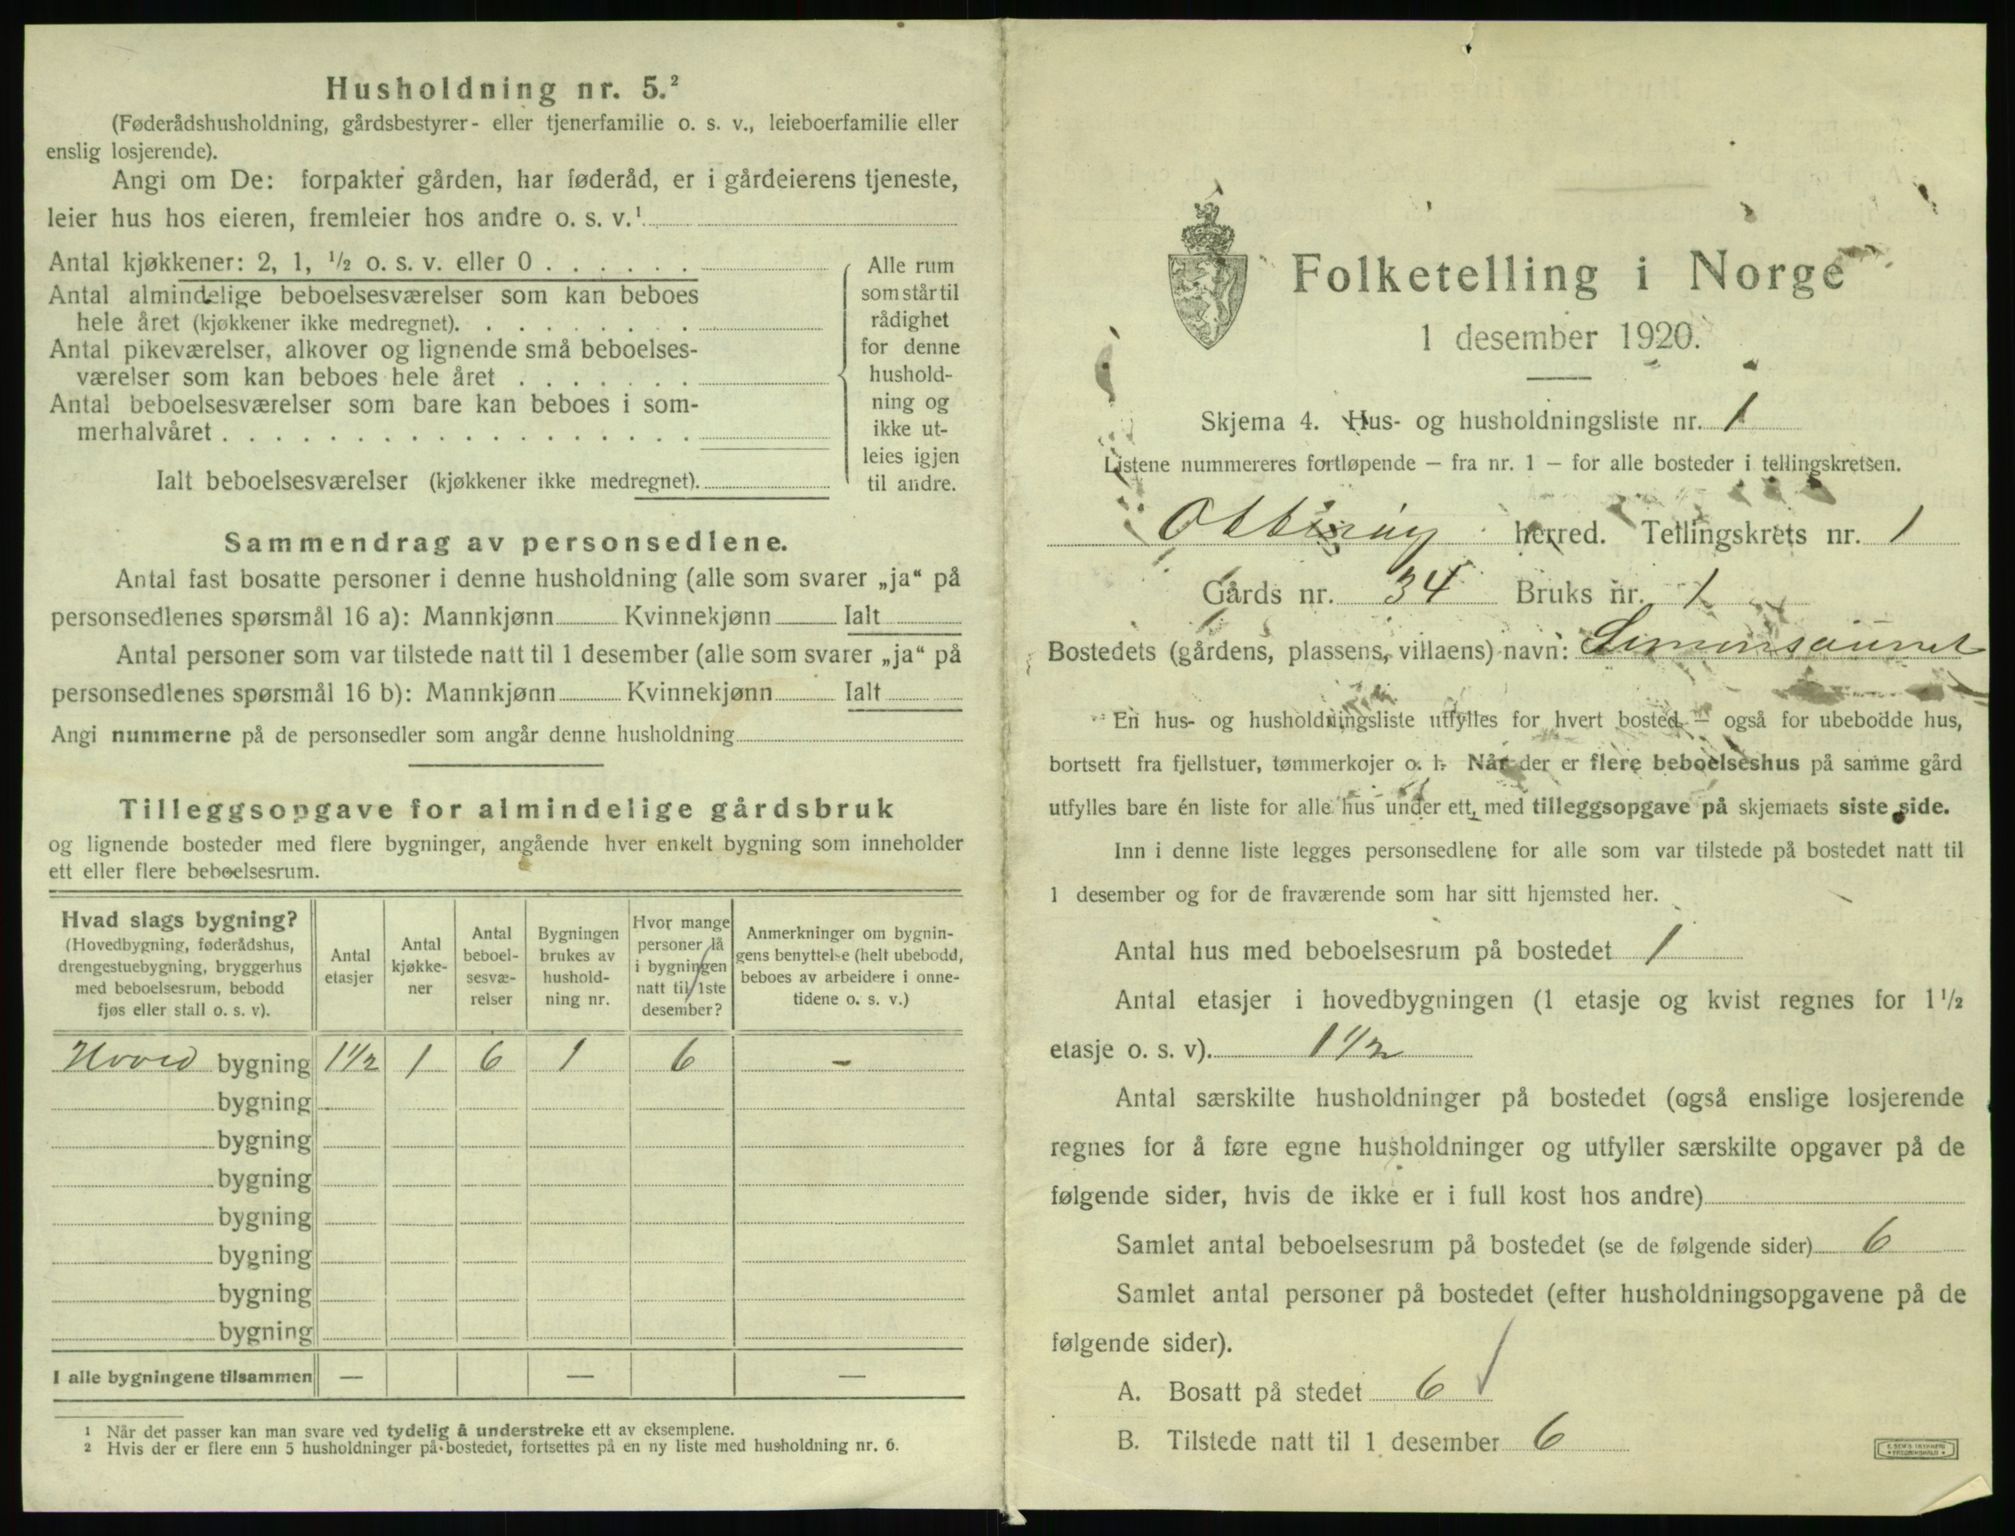 Husholdning nr. 5.²
(Føderådshusholdning, gårdsbestyrer- eller tjenerfamilie o. s. v., leieboerfamilie eller
enslig losjerende).
Angi om De: forpakter gården, har føderåd, er i gårdeierens tjeneste,
leier hus hos eieren, fremleier hos andre o. s. v.¹
Antal kjøkkener: 2, 1, ½ o. s. v. eller 0 . . . . . .
Antal almindelige beboelsesværelser som kan beboes
hele året (kjøkkener ikke medregnet). . . . . . . . .
Antal pikeværelser, alkover og lignende små beboelses-
værelser som kan beboes hele året . . . . . . .
Antal beboelsesværelser som bare kan beboes i som-
merhalvåret . . . . . . . . . . . . . . . . . .
Ialt beboelsesværelser (kjøkkener ikke medregnet).
Alle rum
som står til
rådighet
for denne
hushold-
ning og
ikke ut-
leies igjen
til andre.
Sammendrag av personsedlene.
Antal fast bosatte personer i denne husholdning (alle som svarer „ja“ på
personsedlenes spørsmål 16 a): Mannkjønn Kvinnekjønn Ialt
Antal personer som var tilstede natt til 1 desember (alle som svarer „ja“ på
personsedlenes spørsmål 16 b): Mannkjønn Kvinnekjønn Ialt
Angi nummerne på de personsedler som angår denne husholdning
Tilleggsopgave for almindelige gårdsbruk
og lignende bosteder med flere bygninger, angående hver enkelt bygning som inneholder
ett eller flere beboelsesrum.
Hvad slags bygning?
(Hovedbygning, føderådshus,
drengestuebygning, bryggerhus
med beboelsesrum, bebodd
fjøs eller stall o. s. v).
Antal
etasjer
Antal
kjøkke-
ner
Antal
beboel-
sesvæ-
relser
Bygningen
brukes av
hushold-
ning nr.
Hvor mange
personer lå
i bygningen
natt til 1ste
desember?
Anmerkninger om bygnin-
gens benyttelse (helt ubebodd,
beboes av arbeidere i onne-
tidene o. s. v.)
Hoved bygning 1½ 1 6 1 6 –
bygning
bygning
bygning
bygning
bygning
bygning
bygning
I alle bygningene tilsammen — — —
¹ Når det passer kan man svare ved tydelig å understreke ett av eksemplene.
² Hvis der er flere enn 5 husholdninger på bostedet, fortsettes på en ny liste med husholdning nr. 6.
Folketelling i Norge
1 desember 1920.
Skjema 4. Hus- og husholdningsliste nr. 1
Listene nummereres fortløpende – fra nr. 1 – for alle bosteder i tellingskretsen.
herred. Tellingskrets nr. 1
Gårds nr. 34 Bruks nr. 1
Bostedets (gårdens, plassens, villaens) navn: Simonsaunet
En hus- og husholdningsliste utfylles for hvert bosted – også for ubebodde hus,
bortsett fra fjellstuer, tømmerkojer o. l. Når der er flere beboelseshus på samme gård
utfylles bare én liste for alle hus under ett, med tilleggsopgave på skjemaets siste side.
Inn i denne liste legges personsedlene for alle som var tilstede på bostedet natt til
1 desember og for de fraværende som har sitt hjemsted her.
Antal hus med beboelsesrum på bostedet 1
Antal etasjer i hovedbygningen (1 etasje og kvist regnes for 1½
etasje o. s. v). 1½
Antal særskilte husholdninger på bostedet (også enslige losjerende
regnes for å føre egne husholdninger og utfyller særskilte opgaver på de
følgende sider, hvis de ikke er i full kost hos andre)
Samlet antal beboelsesrum på bostedet (se de følgende sider) 6
Samlet antal personer på bostedet (efter husholdningsopgavene på de
følgende sider).
A. Bosatt på stedet 6
B. Tilstede natt til 1 desember 6